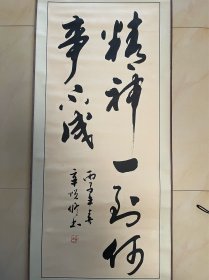 精神一到何
事不成
丙子年春